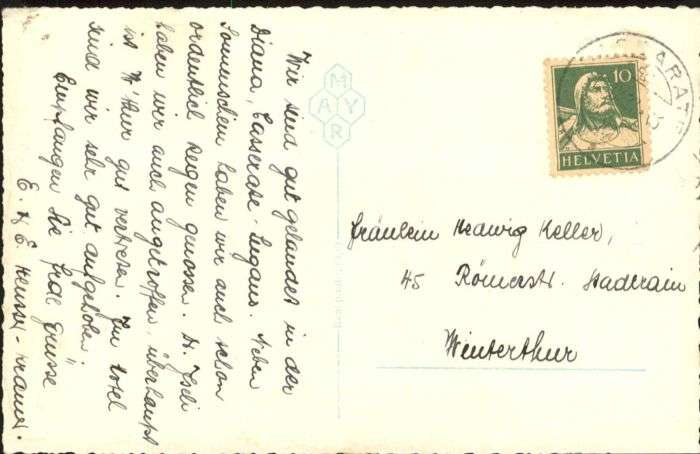 Wir sind gut gelandet in der
Diana, Cassarate-Lugano. Neben
Sonnenschein haben wir auch schon
ordentlich Regen genossen. H. Isch
haben wir auch angetroffen, überhaupt
ist W'thur gut vertreten. Im Hotel
sind wir sehr gut aufgehoben.
Empfangen Sie frdl. Grüsse
E. & E.
MAYR
10
HELVETIA
Fräulein Hedwig Keller,
45 Römerstr. Stadtrain
Winterthur